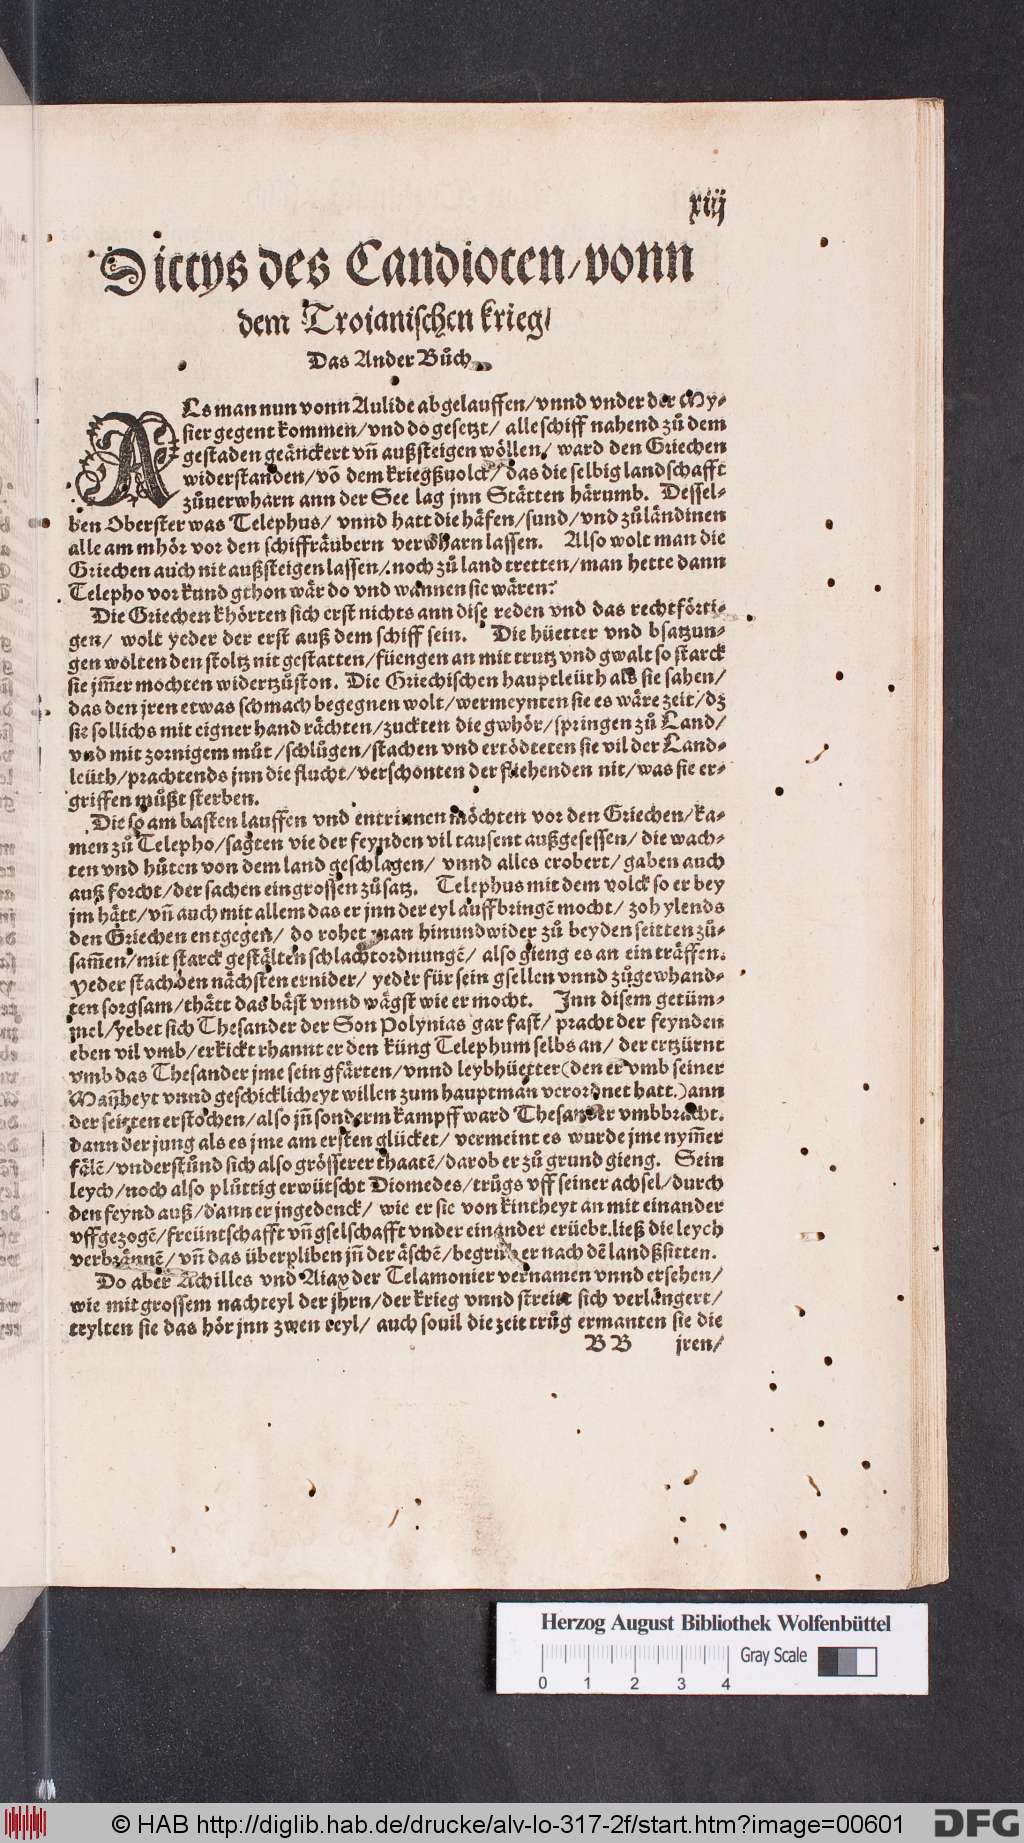 xiij
Dictys des Candioten/vonn
dem Troianischen krieg/
Das Ander Bůch.
ALs man nun vonn Aulide abgelauffen/vnnd vnder der My-
sier gegent kommen/vnd do gesetzt/ alle schiff nahend zů dem
gestaden geänckert vñ außsteigen wöllen/ ward den Griechen
widerstanden/võ dem kriegßuolck/ das die selbig landschafft
zůuerwharn ann der See lag jnn Stätten härumb. Dessel-
ben Oberster was Telephus/ vnnd hatt die häfen/sund/vnd zůländinen
alle am mhör vor den schiffräubern verwharn lassen. Also wolt man die
Griechen auch nit außsteigen lassen/noch zů land tretten/man hette dann
Telepho vor kund gthon wär do vnd wannen sie wären.
Die Griechen khörten sich erst nichts ann dise reden vnd das rechtförti-
gen/ wolt yeder der erst auß dem schiff sein. Die hüetter vnd bsatzun-
gen wolten den stoltz nit gestatten/füengen an mit trutz vnd gwalt so starck
sie jm̃er mochten widertzůston. Die Griechischen hauptleüth als sie sahen/
das den jren etwas schmach begegnen wolt/wermeynten sie es wäre zeit/dz
sie sollichs mit eigner hand rächten/zuckten die gwhör/springen zů Land/
vnd mit zornigem můt/schlůgen/stachen vnd ertödteten sie vil der Land-
leüth/prachtends jnn die flucht/verschonten der fliehenden nit/was sie er-
griffen můßt sterben.
Die so am basten lauffen vnd entrinnen möchten vor den Griechen/ka-
men zů Telepho/sagten vie der feynden vil tausent außgesessen/ die wach-
ten vnd hůten von dem land geschlagen/ vnnd alles erobert/ gaben auch
auß forcht/der sachen ein grossen zůsatz. Telephus mit dem volck so er bey
jm hätt/vñ auch mit allem das er jnn der eyl auffbringẽ mocht/ zoh ylends
den Griechen entgegen/ do rohet man hinundwider zů beyden seitten zů-
sam̃en/mit starck gestälten schlachtordnungẽ/ also gieng es an ein träffen.
Yeder stach den nächsten ernider/ yeder für sein gsellen vnnd zůgewhand-
ten sorgsam/thätt das bäst vnnd wägst wie er mocht. Jnn disem getüm-
mel/yebet sich Thesander der Son Polynias gar fast/ pracht der feynden
eben vil vmb/erkickt rhannt er den küng Telephum selbs an/ der ertzürnt
vmb das Thesander jme sein gfärten/vnnd leybhüetter(den er vmb seiner
Mañheyt vnnd geschicklicheyt willen zum hauptman verordnet hatt.)ann
der seitten erstochen/also jñ sonderm kampff ward Thesander vmbbracht.
dann der jung als es jme am ersten glücket/ vermeint es wurde jme nym̃er
fälẽ/vnderstůnd sich also grösserer thaatẽ/darob er zů grund gieng. Sein
leych/noch also plůttig erwütscht Diomedes/trůgs vff seiner achsel/durch
den feynd auß/dann er jngedenck/ wie er sie von kintheyt an mit einander
vffgezogẽ/freüntschafft vñ gselschafft vnder einander erüebt.ließ die leych
verbrännẽ/vñ das überpliben jñ der äschẽ/begrůb er nach dẽ landßsitten.
Do aber Achilles vnd Aiax der Telamonier vernamen vnnd ersehen/
wie mit grossem nachteyl der jhrn/der krieg vnnd streitt sich verlängert/
teylten sie das hör jnn zwen teyl/ auch souil die zeit trůg ermanten sie die
BB jren/
Herzog August Bibliothek Wolfenbüttel
Gray Scale
0 1 2 3 4
© HAB http://diglib.hab.de/drucke/alv-lo-317-2f/start.htm?image=00601
DFG